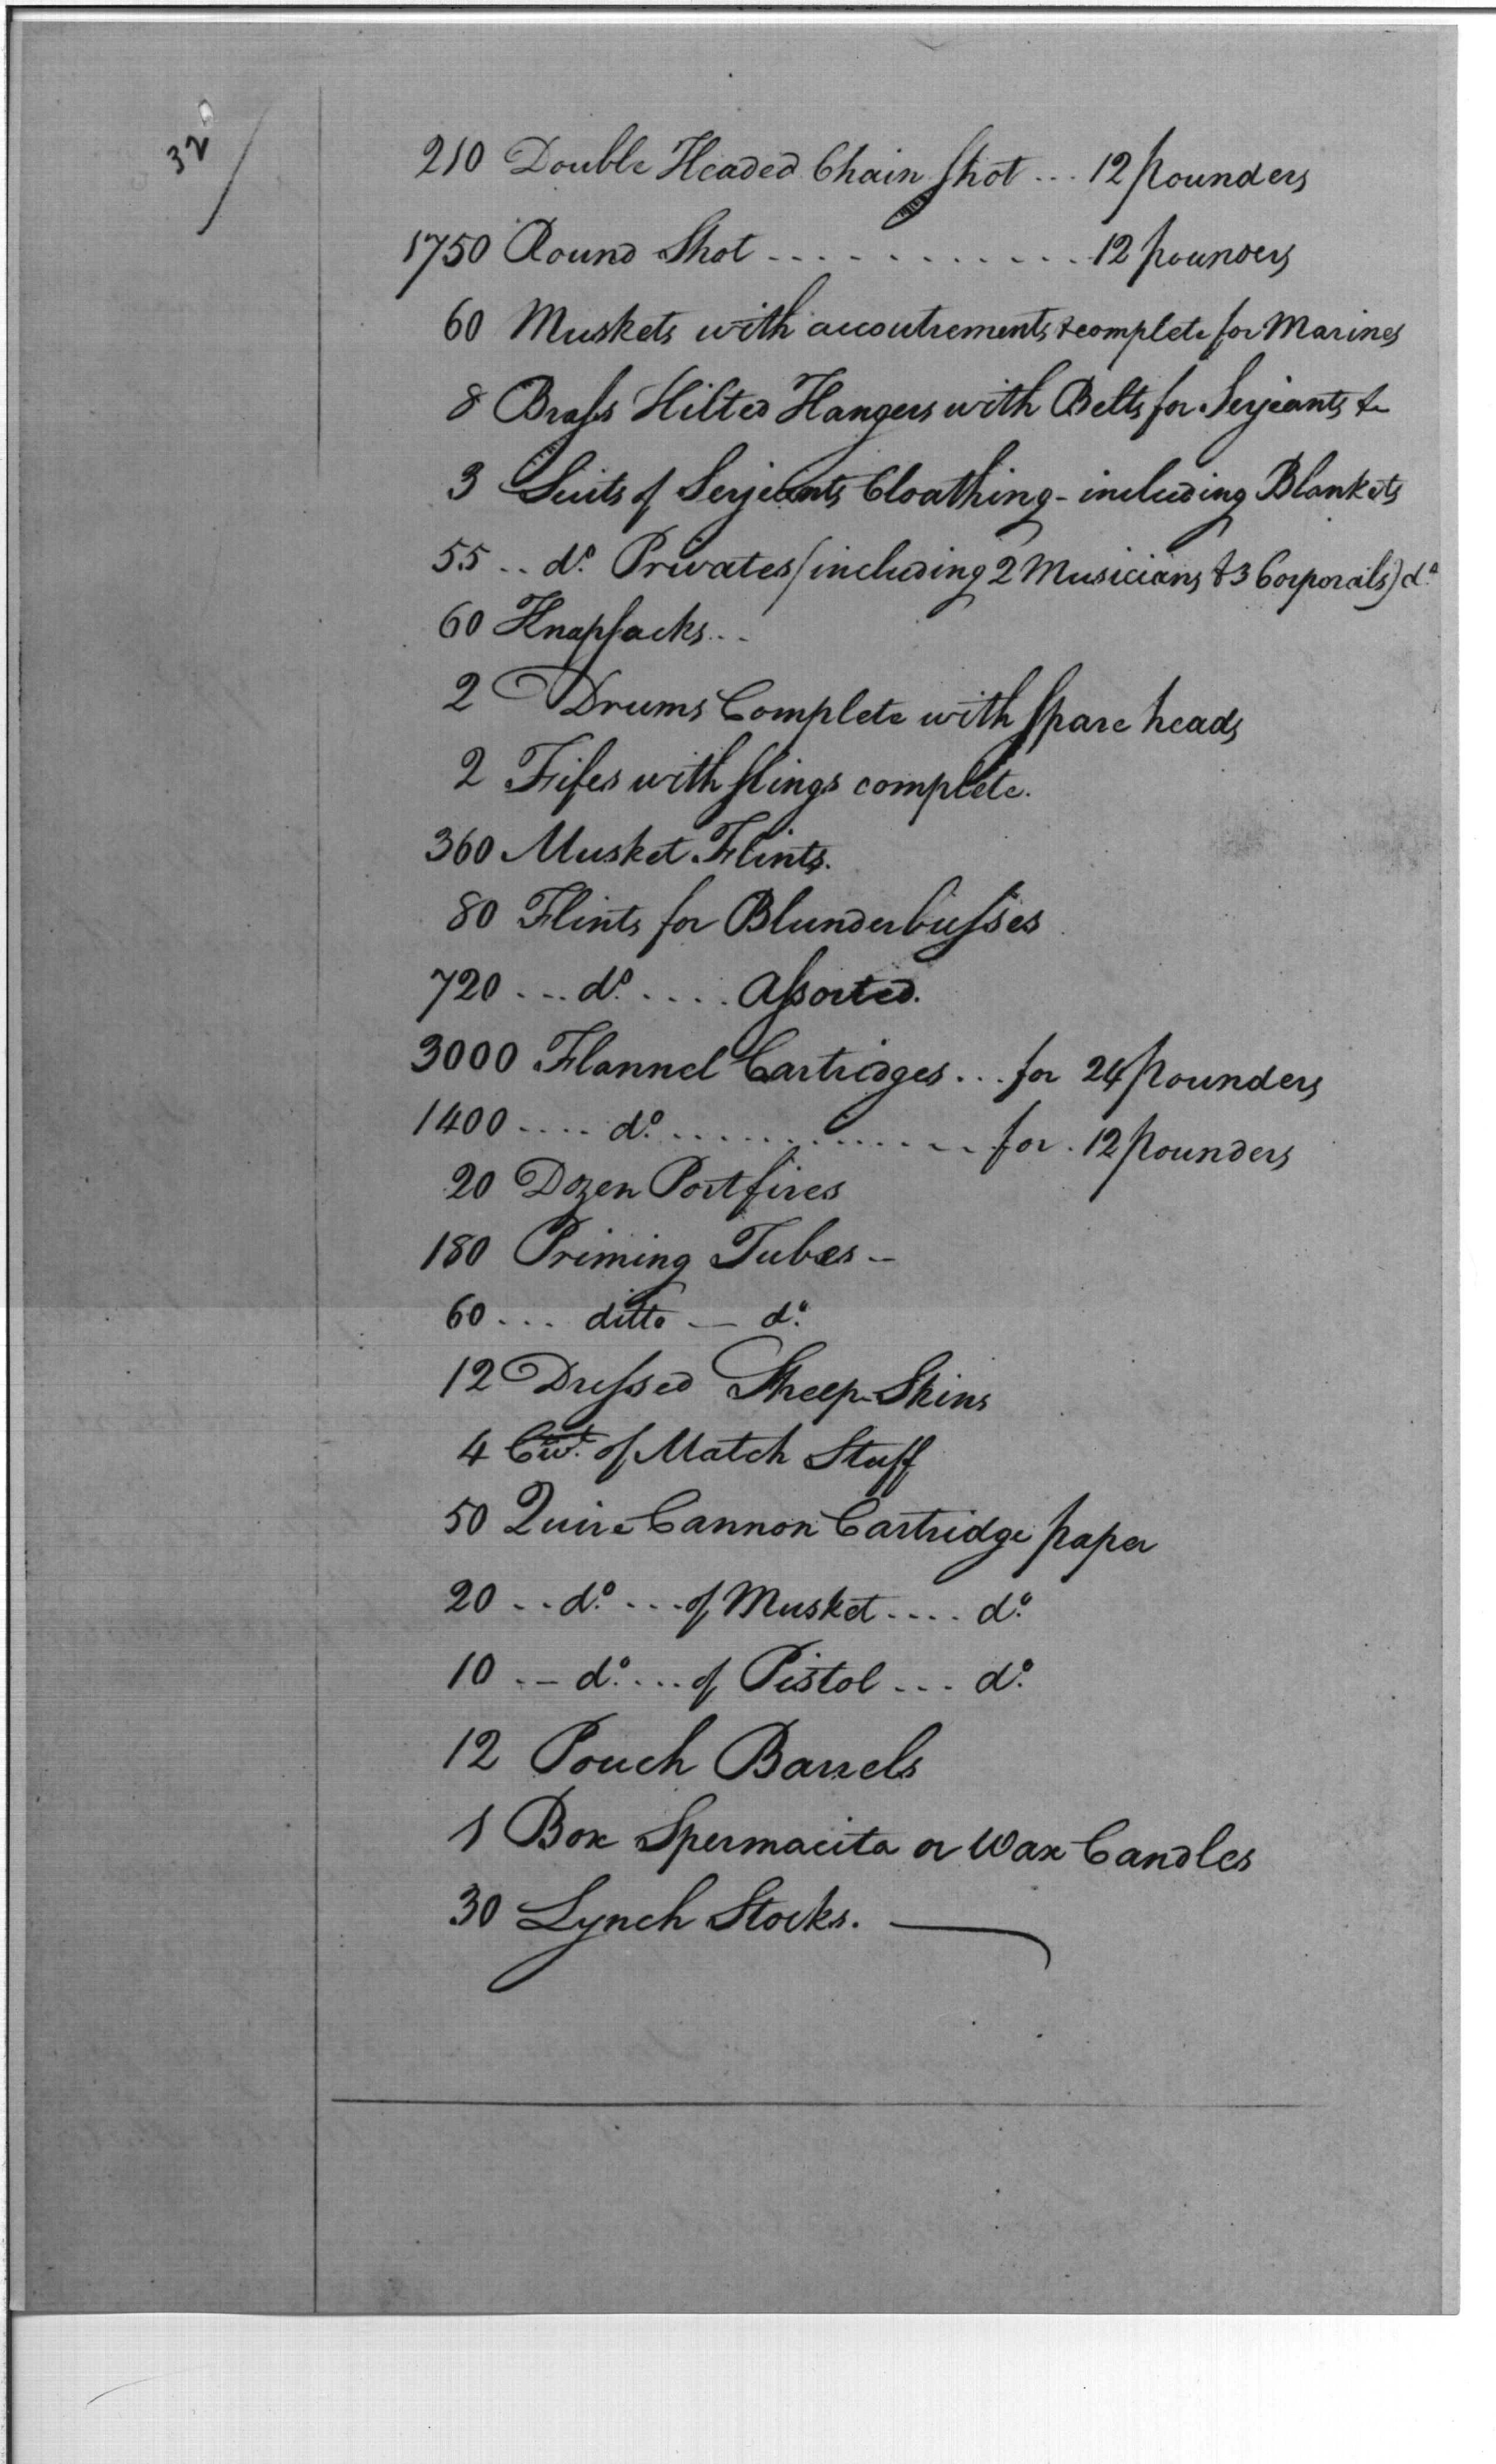 32
210 Double Headed Chain Shot ... 12 pounders
1750 Round Shot ............ 12 pounders
60 Muskets with accoutrements &complete for Marines
8 Brass Hilted Hangers with Belts for Serjeants &
3 Suits of Serjeants Cloathing - including Blankets
55 .. do. Privates (including 2 Musicians & 3 Corporals) do.
60 Knapsacks...
2 Drums Complete with spare heads
2 Fifes with slings complete.
360 Musket Flints.
80 Flints for Blunderbusses
720 ... do. .... Assorted.
3000 Flannel Cartridges ... for 24 pounders
1400 .... do. ............. for . 12 pounders
20 Dozen Portfires
180 Priming Tubes -
60 ... ditto - do.
12 Dressed Sheep-Skins
4 Cwt. of Match Stuff
50 Quire Cannon Cartridge paper
20 .. do. ... of Musket .... do.
10 .. do. ... of Pistol ... do.
12 Pouch Barrels
1 Box Spermacita or Wax Candles
30 Lynch Stocks.